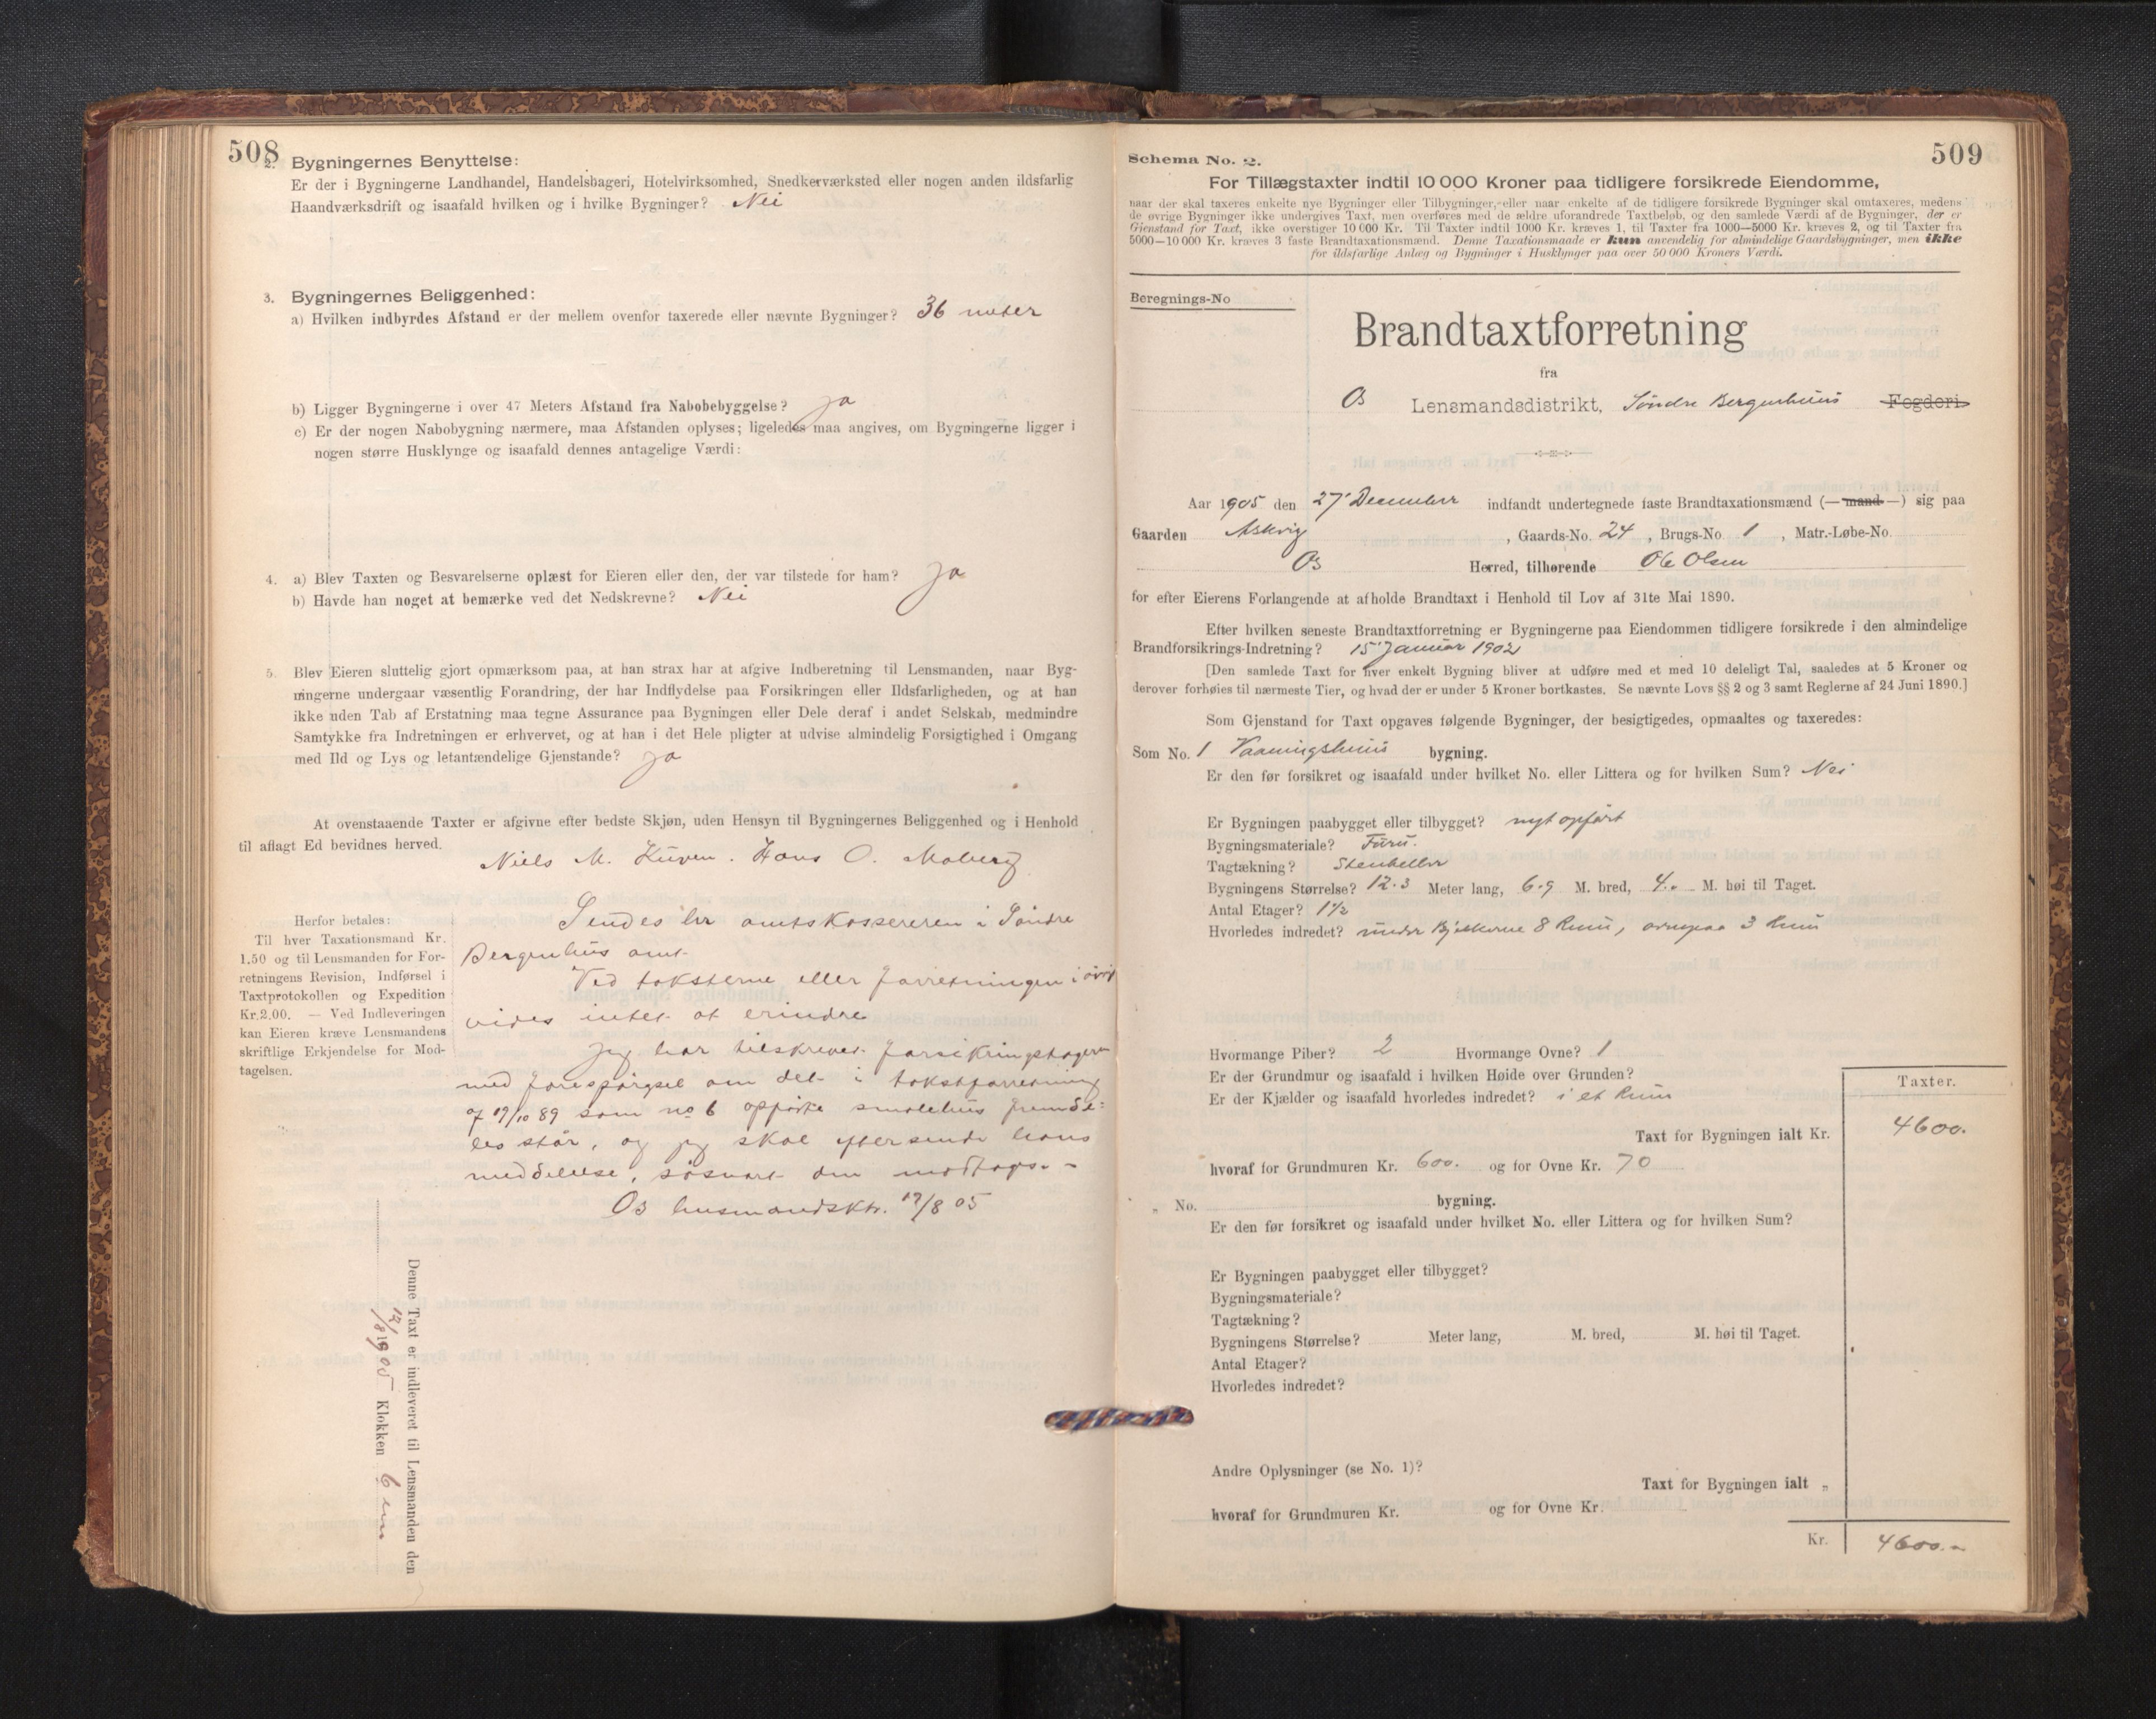 508
2. Bygningernes Benyttelse:
Er der i Bygningerne Landhandel, Handelsbageri, Hotelvirksomhed, Snedkerværksted eller nogen anden ildsfarlig
Haandværksdrift og isaafald hvilken og i hvilke Bygninger? Nei
3. Bygningernes Beliggenhed:
a) Hvilken indbyrdes Afstand er der mellem ovenfor taxerede eller nævnte Bygninger? 36 meter
b) Ligger Bygningerne i over 47 Meters Afstand fra Nabobebyggelse? Ja
c) Er der nogen Nabobygning nærmere, maa Afstanden oplyses; ligeledes maa angives, om Bygningerne ligger i
nogen større Husklynge og isaafald dennes antagelige Værdi:
4. a) Blev Taxten og Besvarelserne oplæst for Eieren eller den, der var tilstede for ham? Ja
b) Havde han noget at bemærke ved det Nedskrevne? Nei
5. Blev Eieren sluttelig gjort opmærksom paa, at han strax har at afgive Indberetning til Lensmanden, naar Byg-
ningerne undergaar væsentlig Forandring, der har Indflydelse paa Forsikringen eller Ildsfarligheden, og at han
ikke uden Tab af Erstatning maa tegne Assurance paa Bygningen eller Dele deraf i andet Selskab, medmindre
Samtykke fra Indretningen er erhvervet, og at han i det Hele pligter at udvise almindelig Forsigtighed i Omgang
med Ild og Lys og letantændelige Gjenstande? Ja
At ovenstaaende Taxter er afgivne efter bedste Skjøn, uden Hensyn til Bygningernes Beliggenhed og i Henhold
til aflagt Ed bevidnes herved.
Niels M. Kuven. Hans O. Moberg
Herfor betales:
Til hver Taxationsmand Kr.
1.50 og til Lensmanden for For-
retningens Revision, Indførsel i
Taxtprotokollen og Expedition
Kr. 2.00. — Ved Indleveringen
kan Eieren kræve Lensmandens
skriftlige Erkjendelse for Mod-
tagelsen.
Sendes hr amtskassereren i Söndre
Bergenhus amt.
Ved taksterne eller forretningen i övrigt
vides intet at erindre
Jeg har tilskrevet forsikringstageren
med forespörgsel om det i takstforretning
af 19/10 89 som no 6 opförte smalehus fremde=
les står, og jeg skal eftersende hans
meddelelse, såsnart den modtages. -
Os lensmandsktr. 17/8 05
Denne Taxt er indleveret til Lensmanden den
12/8 1905 Klokken 6 em
509
Schema No. 2.
For Tillægstaxter indtil 10 000 Kroner paa tidligere forsikrede Eiendomme,
naar der skal taxeres enkelte nye Bygninger eller Tilbygninger, eller naar enkelte af de tidligere forsikrede Bygninger skal omtaxeres, medens
de øvrige Bygninger ikke undergives Taxt, men overføres med de ældre uforandrede Taxtbeløb, og den samlede Værdi af de Bygninger, der er
Gjenstand for Taxt, ikke overstiger 10 000 Kr. Til Taxter indtil 1000 Kr. kræves 1, til Taxter fra 1000—5000 Kr. kræves 2, og til Taxter fra
5000—10 000 Kr. kræves 3 faste Brandtaxationsmænd. Denne Taxationsmaade er kun anvendelig for almindelige Gaardsbygninger, men ikke
for ildsfarlige Anlæg og Bygninger i Husklynger paa over 50 000 Kroners Værdi.
Beregnings-No
Brandtaxtforretning
fra
Os Lensmandsdistrikt, Søndre Bergenhuus Fogderi
Aar 1905 den 27' December indfandt undertegnede faste Brandtaxationsmænd (— mand —) sig paa
Gaarden Askvig, Gaards-No. 24, Brugs-No. 1, Matr.-Løbe-No.
Os Herred, tilhørende Ole Olsen
for efter Eierens Forlangende at afholde Brandtaxt i Henhold til Lov af 31te Mai 1890.
Efter hvilken seneste Brandtaxtforretning er Bygningerne paa Eiendommen tidligere forsikrede i den almindelige
Brandforsikrings-Indretning? 15' Januar 1902
[Den samlede Taxt for hver enkelt Bygning bliver at udføre med et med 10 deleligt Tal, saaledes at 5 Kroner og
derover forhøies til nærmeste Tier, og hvad der er under 5 Kroner bortkastes. Se nævnte Lovs §§ 2 og 3 samt Reglerne af 24 Juni 1890.]
Som Gjenstand for Taxt opgaves følgende Bygninger, der besigtigedes, opmaaltes og taxeredes:
Som No. 1 Vaaningshuus bygning.
Er den før forsikret og isaafald under hvilket No. eller Littera og for hvilken Sum? Nei
Er Bygningen paabygget eller tilbygget? nyt opført
Bygningsmateriale? Furu.
Tagtækning? Stenheller
Bygningens Størrelse? 12.3 Meter lang, 6.9 M. bred, 4.0 M. høi til Taget.
Antal Etager? 1½
Hvorledes indredet? under Bjelkerne 8 Rum, ovenpaa 3 Rum
Hvormange Piber? 2 Hvormange Ovne? 1
Er der Grundmur og isaafald i hvilken Høide over Grunden?
Er der Kjælder og isaafald hvorledes indredet? i et Rum
Taxter.
Taxt for Bygningen ialt Kr. 4600.
hvoraf for Grundmuren Kr. 600. og for Ovne Kr. 70
„ No. bygning.
Er den før forsikret og isaafald under hvilket No. eller Littera og for hvilken Sum?
Er Bygningen paabygget eller tilbygget?
Bygningsmateriale?
Tagtækning?
Bygningens Størrelse? Meter lang, M. bred, M. høi til Taget.
Antal Etager?
Hvorledes indredet?
Andre Oplysninger (se No. 1)?
Taxt for Bygningen ialt „
hvoraf for Grundmuren Kr. og for Ovne Kr.
Kr. 4600.-